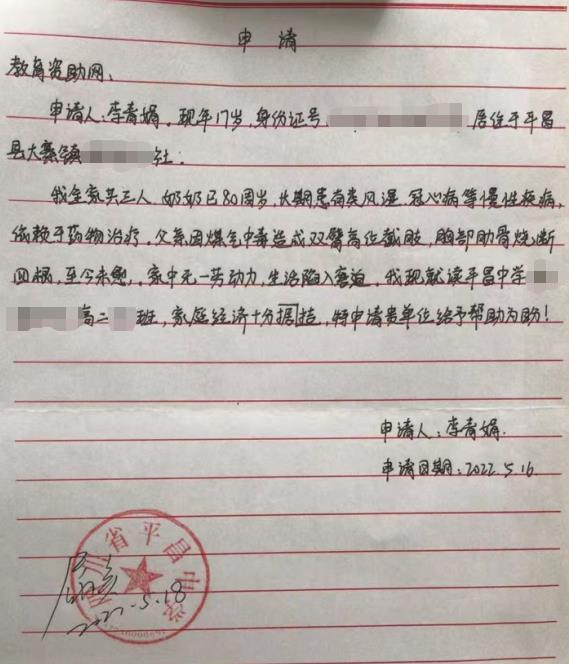 申请
教育资助网：
申请人：李青娟，现年17岁，身份证号 居住于平昌
县大寨镇 社。
我全家共三人，奶奶已80周岁，长期患有类风湿、冠心病等慢性疾病，
依赖于药物治疗。父亲因煤气中毒造成双臂高位截肢，胸部肋骨烧断
四根，至今未愈。家中无一劳动力，生活陷入窘迫。我现就读平昌中学
高二 班，家庭经济十分拮据，特申请贵单位给予帮助为盼！
申请人：李青娟.
申请日期：2022.5.16.
四川省平昌中学
2022.5.18